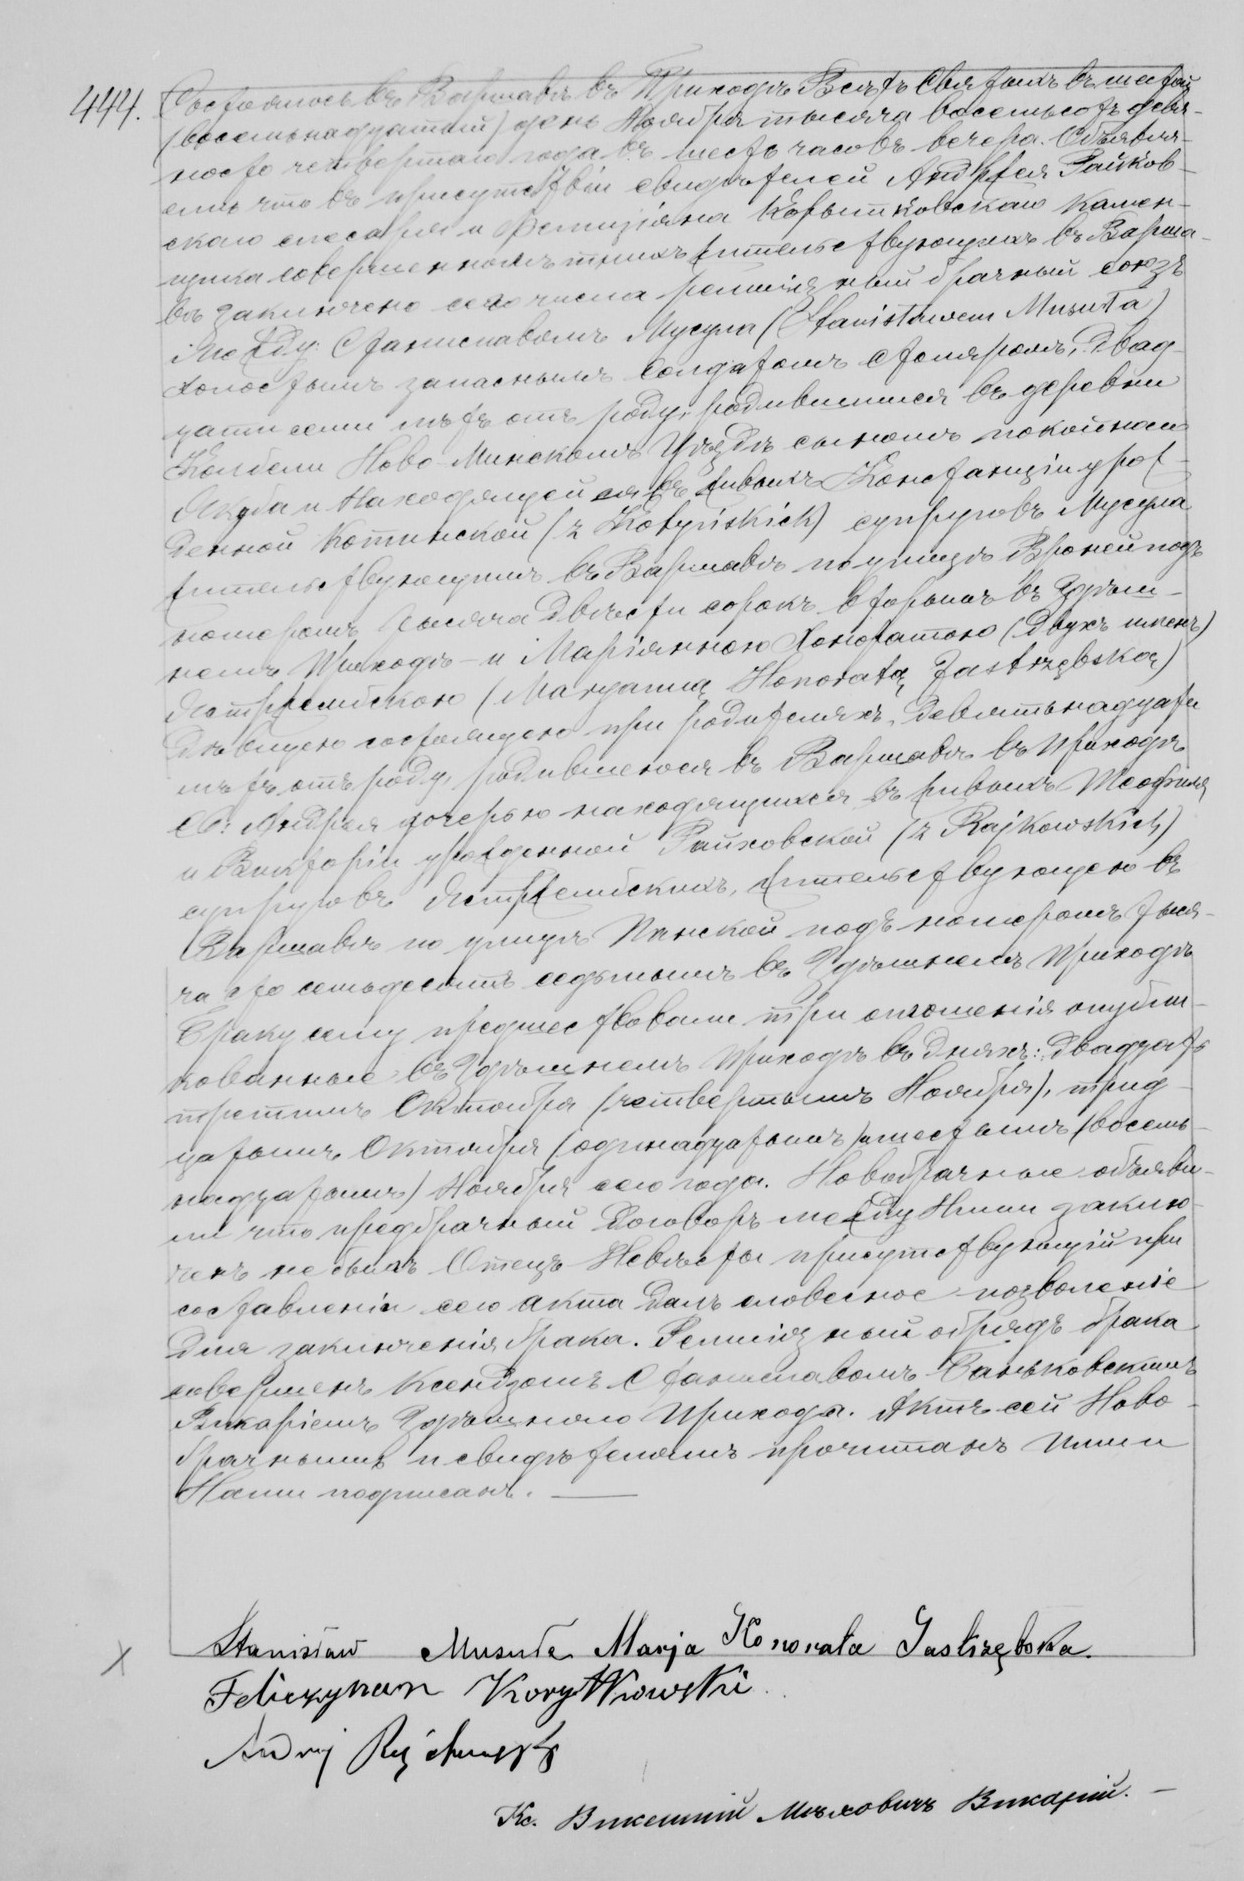 444. Состоялось въ Варшавѣ въ Приходѣ Всѣхъ Святыхъ въ шестой
(восемьнадцатый) день Ноября тысяча восемьсотъ девя-
носто четвертаго года въ шесть часовъ вечера. Объявля-
емъ что въ присутствіи свидѣтелей Андрея Райков-
скаго слесаря и Фелиціяна Корытковскаго камен-
щика совершеннолѣтнихъ жительствующихъ въ Варша-
вѣ заключено сего числа религіозный брачный союзъ
между: Станиславомъ Мусула (Stanisławem Musuła)
холостымъ запаснымъ солдатомъ столяромъ, двад-
цати семи лѣтъ отъ роду, родившимся въ деревни
Колбели Ново-Минскомъ Уѣздѣ сыномъ покойнаго
Якуба и находящейся въ живыхъ Констанціи урож-
денной Котынской (z Kotyńskich) супруговъ Мусула
жительствующимъ въ Варшавѣ по улицѣ Вроней подъ
номеромъ тысяча двѣсти сорокъ вторымъ въ здѣш-
немъ Приходѣ - и Маріянною Гоноратою (двухъ именъ)
Ястржембскою (Maryanną Honoratą Jastrzębską)
дѣвицею состоящею при родителяхъ, девятьнадцати
лѣтъ отъ роду, родившеюся въ Варшавѣ въ Приходѣ
Св: Андрея дочерью находящихся въ живыхъ Теофиля
и Викторіи урожденной Райковской (z Rajkowskich)
супруговъ Ястржембскихъ, жительствующею въ
Варшавѣ по улицѣ Панской подъ номеромъ тыся-
ча сто семьдесятъ седьмымъ въ здѣшнемъ Приходѣ
Браку сему предшествовали три оглашенія опубли-
кованные въ здѣшнемъ Приходѣ въ дняхъ: двадцать
третьимъ Октября (четвертымъ Ноября), трид-
цатымъ Октября (одинадцатымъ) и шестымъ (восемь-
надцатымъ) Ноября сего года. Новобрачные объяви-
ли что предбрачный договоръ между Ними заклю-
ченъ не былъ Отецъ Невѣсты присутствующій при
составленіи сего акта далъ словесное позволеніе
для заключенія брака. Религіозный обрядъ брака
совершенъ Ксендзомъ Станиславомъ Саньковскимъ
Викаріемъ здѣшняго Прихода. Актъ сей Ново-
брачнымъ и свидѣтелямъ прочитанъ Ими и
Нами подписанъ. —
Stanisław Musuła Marja Honorata Jastrzębska.
Feliczyjnan Korytkowski
Andrzj
Кс. Викентій Мѣховичъ Викарій. —